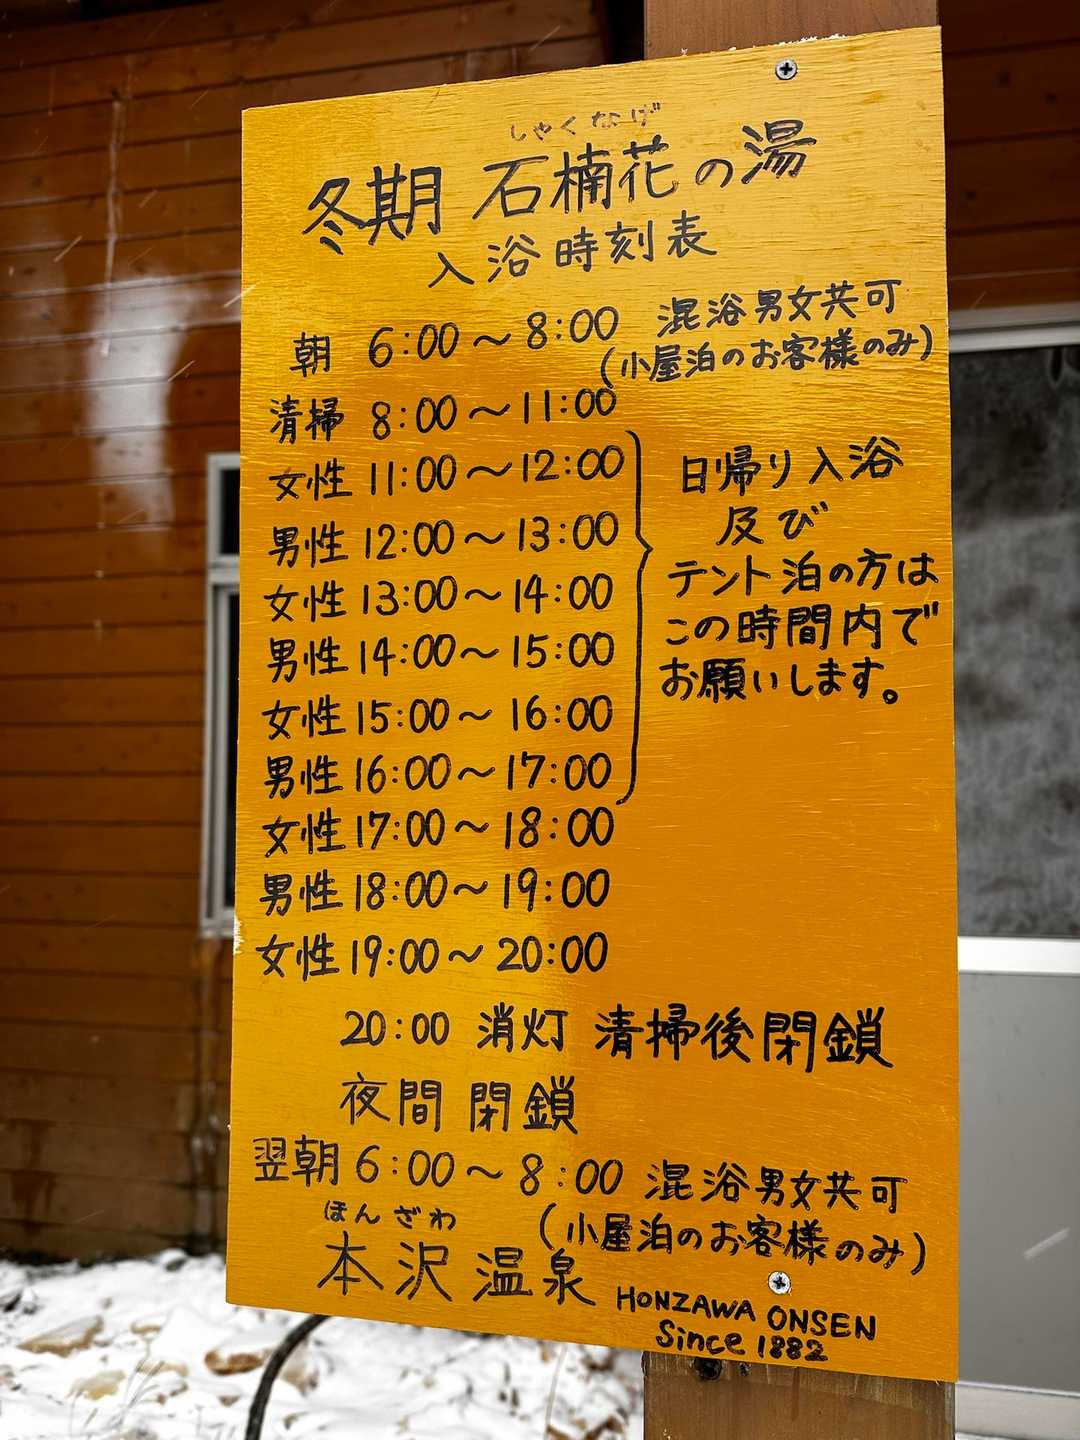 しゃくなげ
冬期 石楠花の湯
入浴時刻表
朝 6:00～8:00 混浴男女共可
(小屋泊のお客様のみ)
清掃 8:00～11:00
女性 11:00～12:00
男性 12:00～13:00
女性 13:00～14:00
男性 14:00～15:00
女性 15:00～16:00
男性 16:00～17:00
日帰り入浴
及び
テント泊の方は
この時間内で
お願いします。
女性 17:00～18:00
男性 18:00～19:00
女性 19:00～20:00
20:00 消灯 清掃後閉鎖
夜間 閉鎖
翌朝 6:00～8:00 混浴男女共可
(小屋泊のお客様のみ)
ほんざわ
本沢温泉
HONZAWA ONSEN
Since 1882